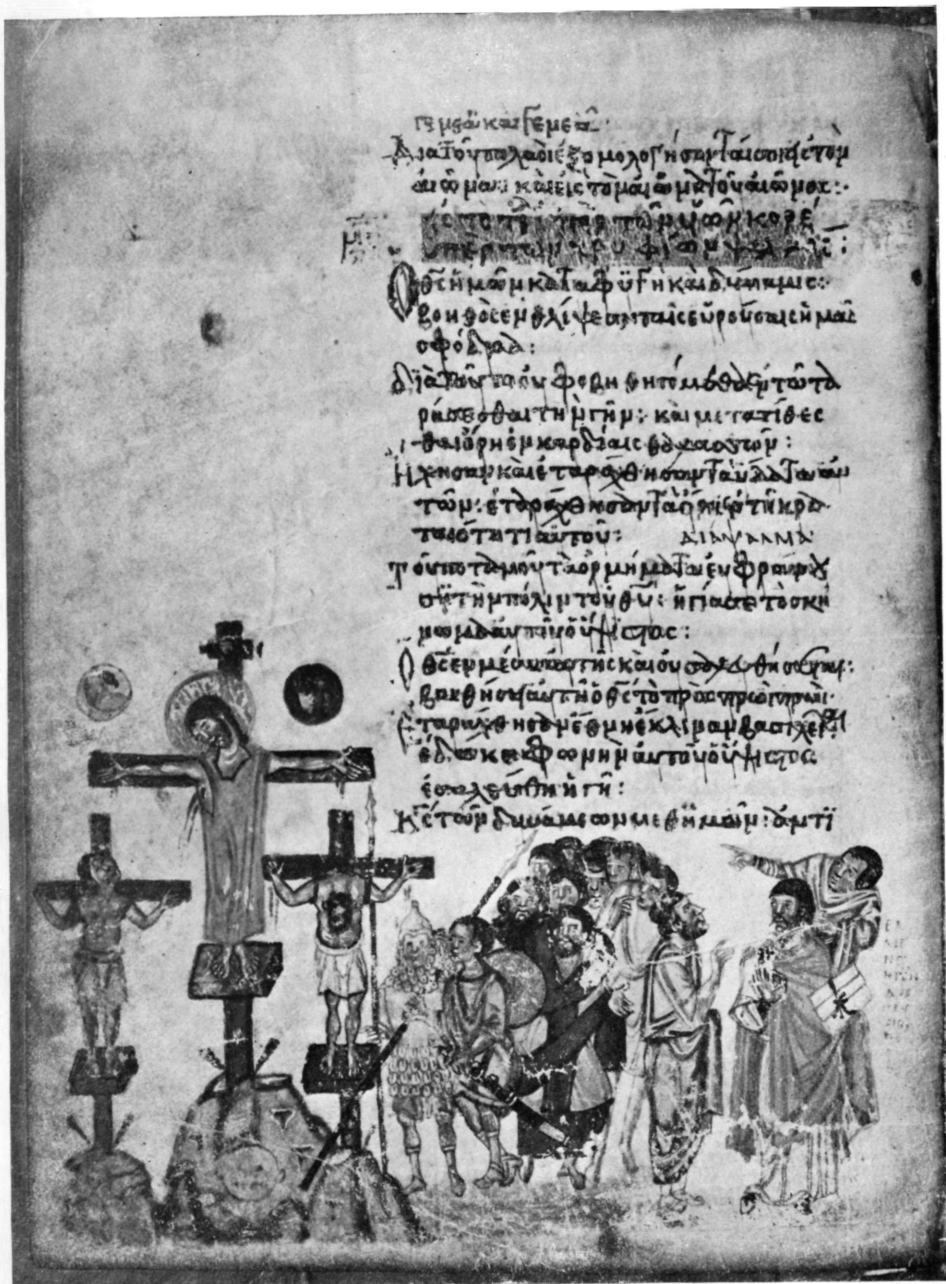 γενεᾶ καὶ γενεᾶ·
Διατοῦτο λαοὶ ἐξομολογήσονταί σοι εἰς τὸν
αἰῶνα· καὶ εἰς τὸν αἰῶνα τοῦ αἰῶνος:
τῶν υἱῶν κορέ
ὑπὲρ τῶν κρυφίων
Ὁ θς ἡμῶν καταφυγὴ καὶ δύναμις:
βοηθὸς ἐν θλίψεσιν ταῖς εὑρούσαις ἡμᾶς
σφόδρα:
διὰ τοῦτο οὐ φοβηθησόμεθα ἐν τῶ τα
ράσσεσθαι τὴν γῆν: καὶ μετατίθεσ
θαι ὄρη ἐν καρδίαις θαλασσῶν:
Ἤχησαν καὶ ἐταράχθησαν τὰ ὕδατα αὐ
τῶν: ἐταράχθησαν τὰ ὄρη ἐν τῆ κρα
ταιότητι αὐτοῦ: ΔΙΑΨΑΛΜΑ
Τοῦ ποταμοῦ τὰ ὁρμήματα εὐφραίνου
σι τὴν πόλιν τοῦ θυ: ἡγίασε τὸ σκή
νωμα αὐτοῦ ὁ ὕψιστος:
Ὁ θς ἐν μέσω αὐτῆς καὶ οὐ σαλευθήσεται:
βοηθήσει αὐτῆ ὁ θς τὸ πρὸς πρωῒ πρωΐ·
Ἐταράχθησαν ἔθνη ἔκλιναν βασιλεῖαι
ἔδωκε φωνὴν αὐτοῦ ὁ ὕψιστος
ἐσαλεύθη ἡ γῆ:
Κς τῶν δυνάμεων μεθ' ἡμῶν: ἀντι